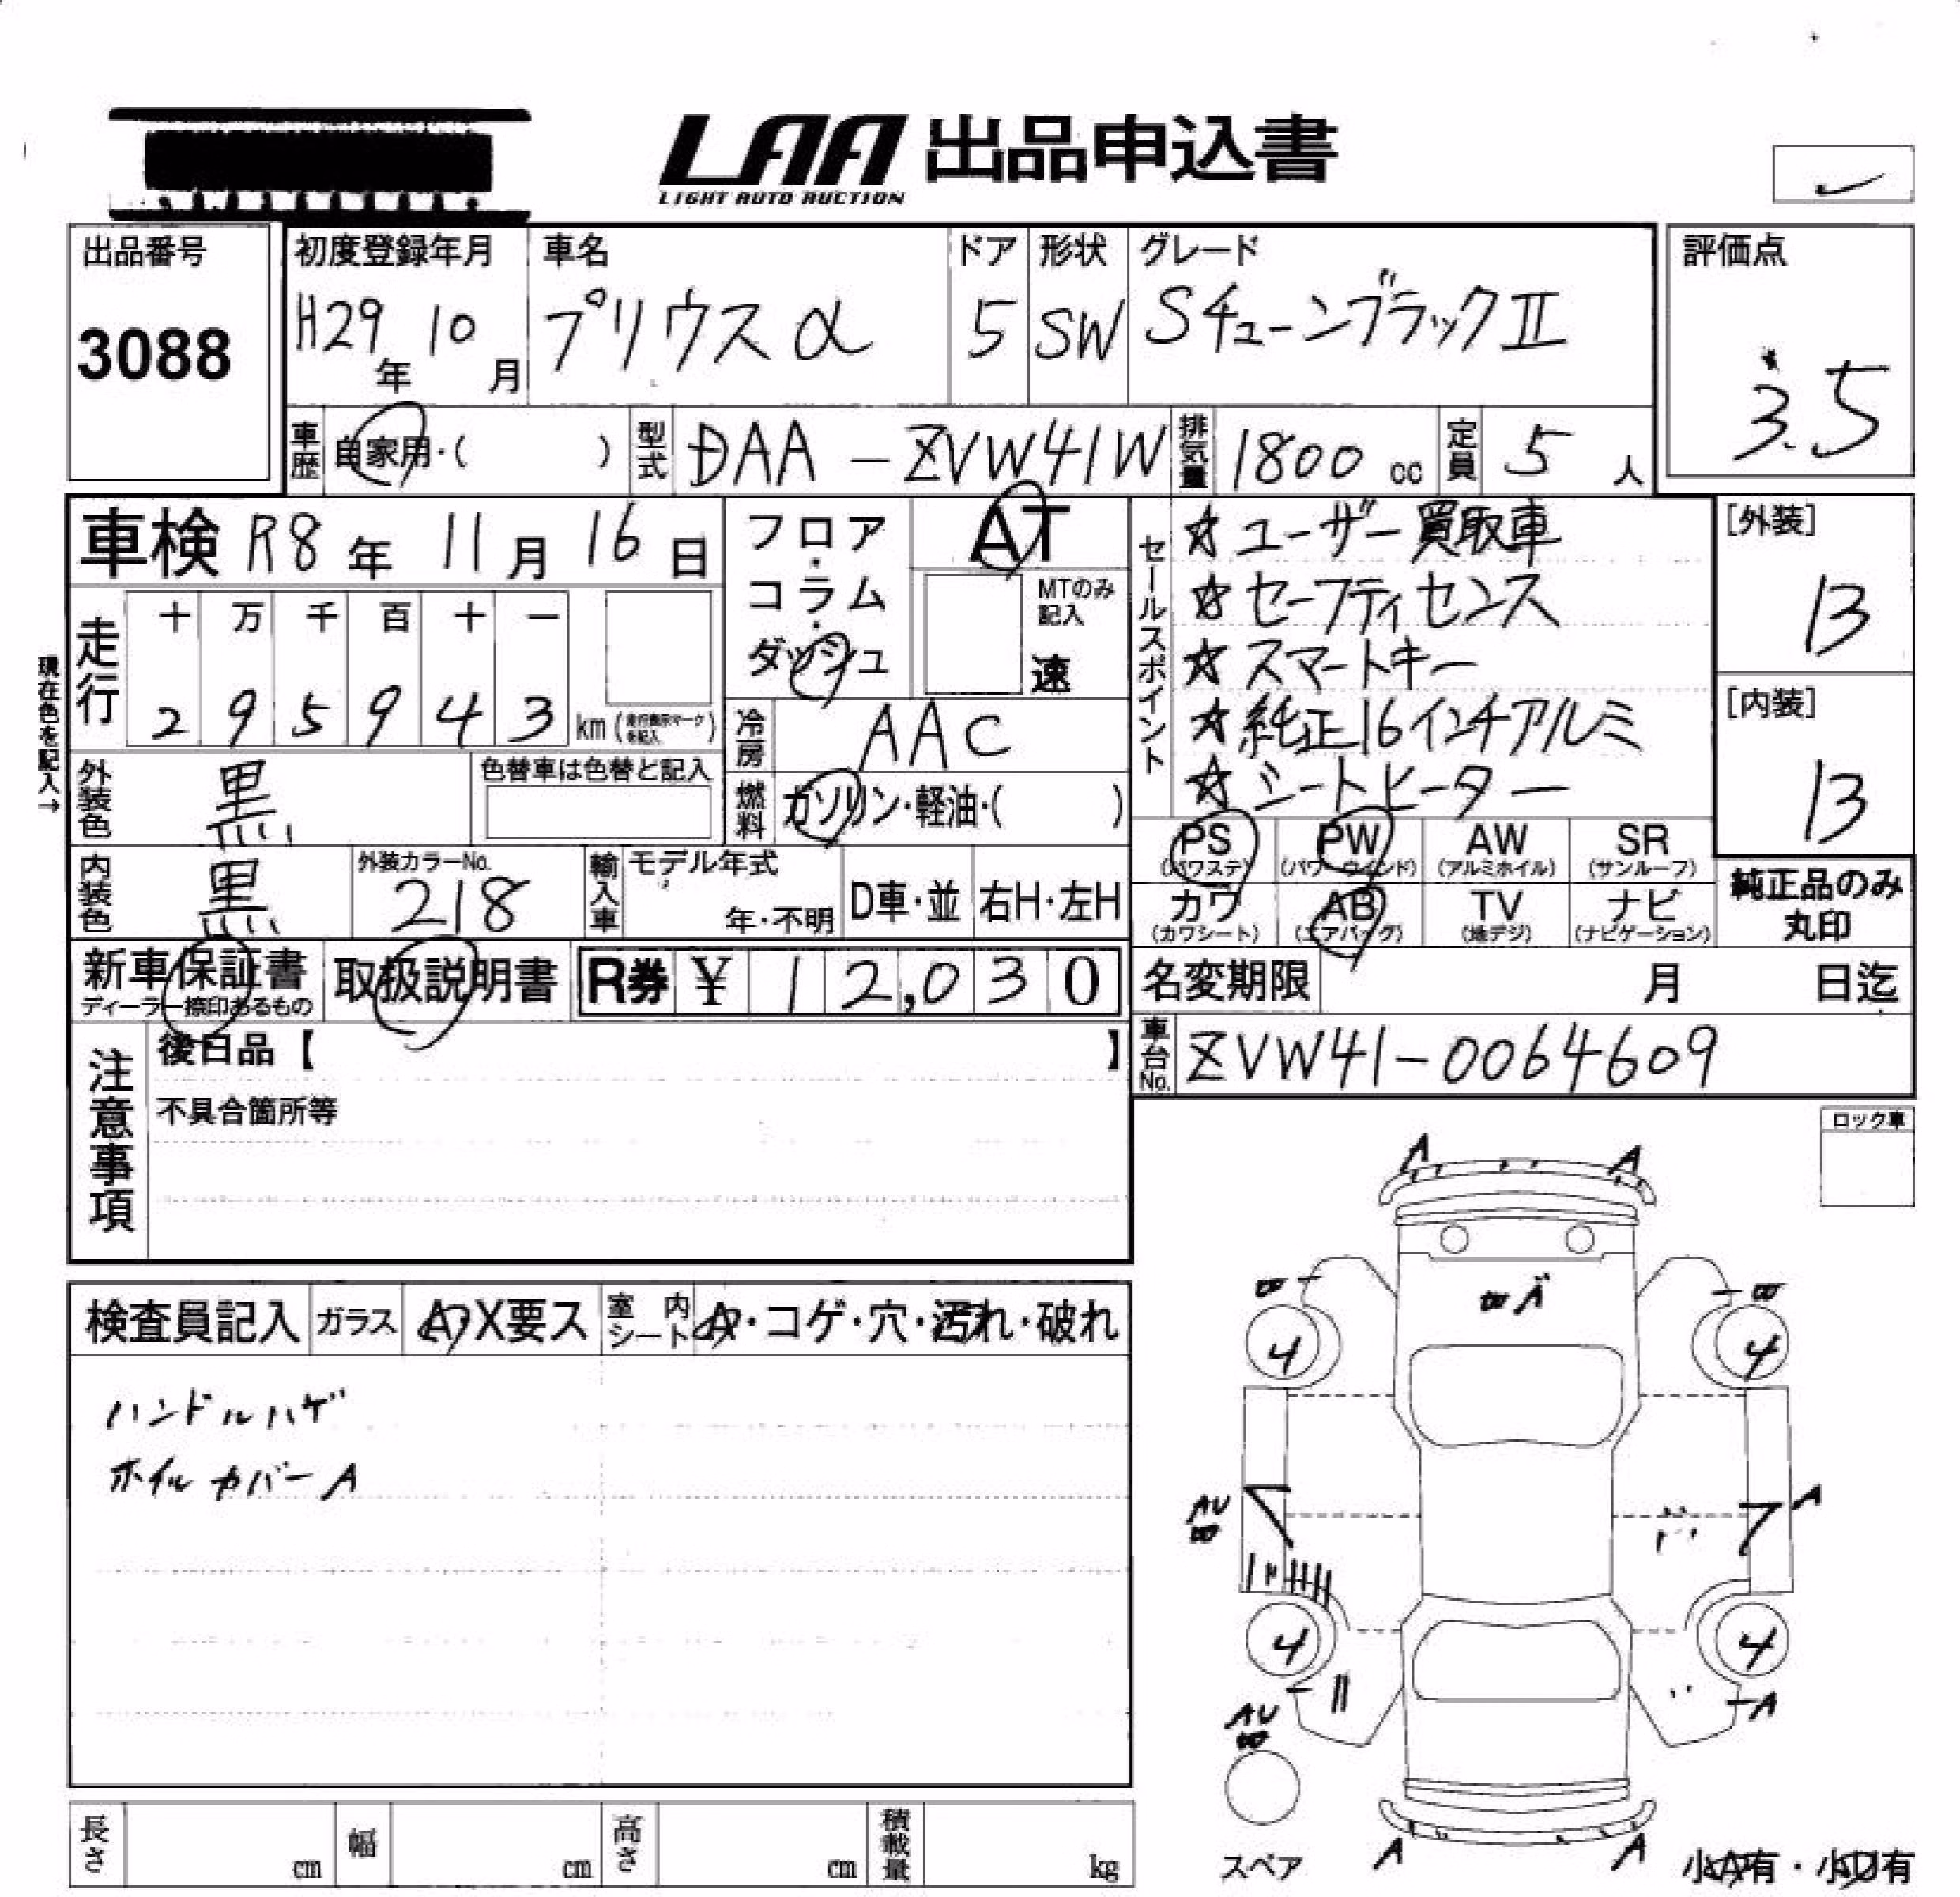 LAA 出品申込書
LIGHT AUTO AUCTION
出品番号
3088
初度登録年月
H29年 10月
車名
プリウスα
ドア
5
形状
SW
グレード
SチューンブラックⅡ
評価点
3.5
車歴 自家用・( )
型式 DAA-ZVW41W
排気量 1800 cc
定員 5 人
車検 R8年 11月 16日
走行
十 万 千 百 十 一
2 9 5 9 4 3 km (走行表示マークを記入)
現在色を記入→
フロア・コラム・ダッシュ
AT
MTのみ記入
速
冷房 AAC
燃料 ガソリン・軽油・( )
セールスポイント
☆ユーザー買取車
☆セーフティセンス
☆スマートキー
☆純正16インチアルミ
☆シートヒーター
[外装]
13
[内装]
13
外装色 黒
色替車は色替と記入
内装色 黒
外装カラーNo.
218
輸入車
モデル年式
年・不明
D車・並
右H・左H
PS (パワステ)
PW (パワーウインド)
AW (アルミホイル)
SR (サンルーフ)
カワ (カワシート)
AB (エアバッグ)
TV (地デジ)
ナビ (ナビゲーション)
純正品のみ
丸印
新車保証書
ディーラー捺印あるもの
取扱説明書
R券 ¥ 12,030
名変期限 月 日迄
車台No. ZVW41-0064609
注意事項
後日品【 】
不具合箇所等
ロック車
検査員記入
ガラス A・X要ス
室内シート A・コゲ・穴・汚れ・破れ
ハンドルハゲ
ホイルカバーA
A A
A
4 4
AU A
4 4
AU A
A A
スペア
小A有・小U有
長さ cm
幅 cm
高さ cm
積載量 kg